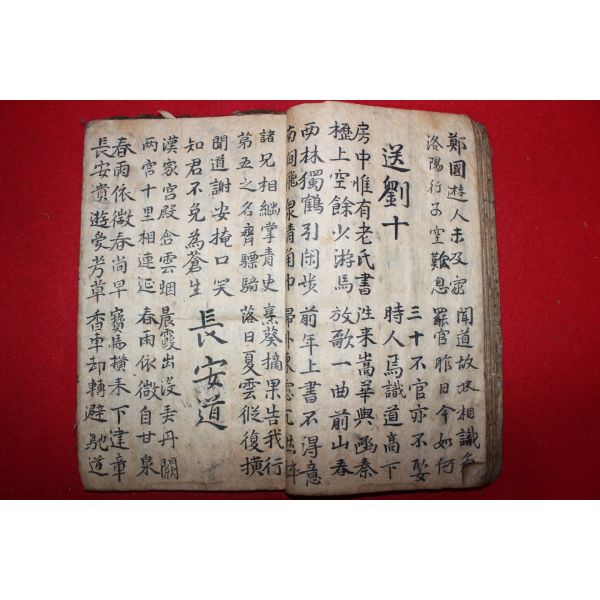 鄭國遊人未及家 聞道故林相識多
洛陽行子空難息 羅官昨日今如何
送劉十
三十不官亦不娶
時人焉識道高下
房中惟有老氏書 徃来嵩華與凾秦
櫪上空餘少游馬 放歌一曲前山春
西林獨鶴引闲步 前年上書不得意
南澗飛泉清角巾 歸卧東窓兀然醉
諸兄相繼掌青史 烹葵摘果告我行
第五之名齊驃騎 落日夏雲縱復橫
聞道謝安掩口笑
知君不免為蒼生
長安道
漢家宮殿含雲烟 晨霞出没弄丹闕
两宮十里相連延 春雨依微自甘泉
春雨依微春尚早 寶馬橫来下建章
長安貴遊愛芳草 香車却轉避馳道